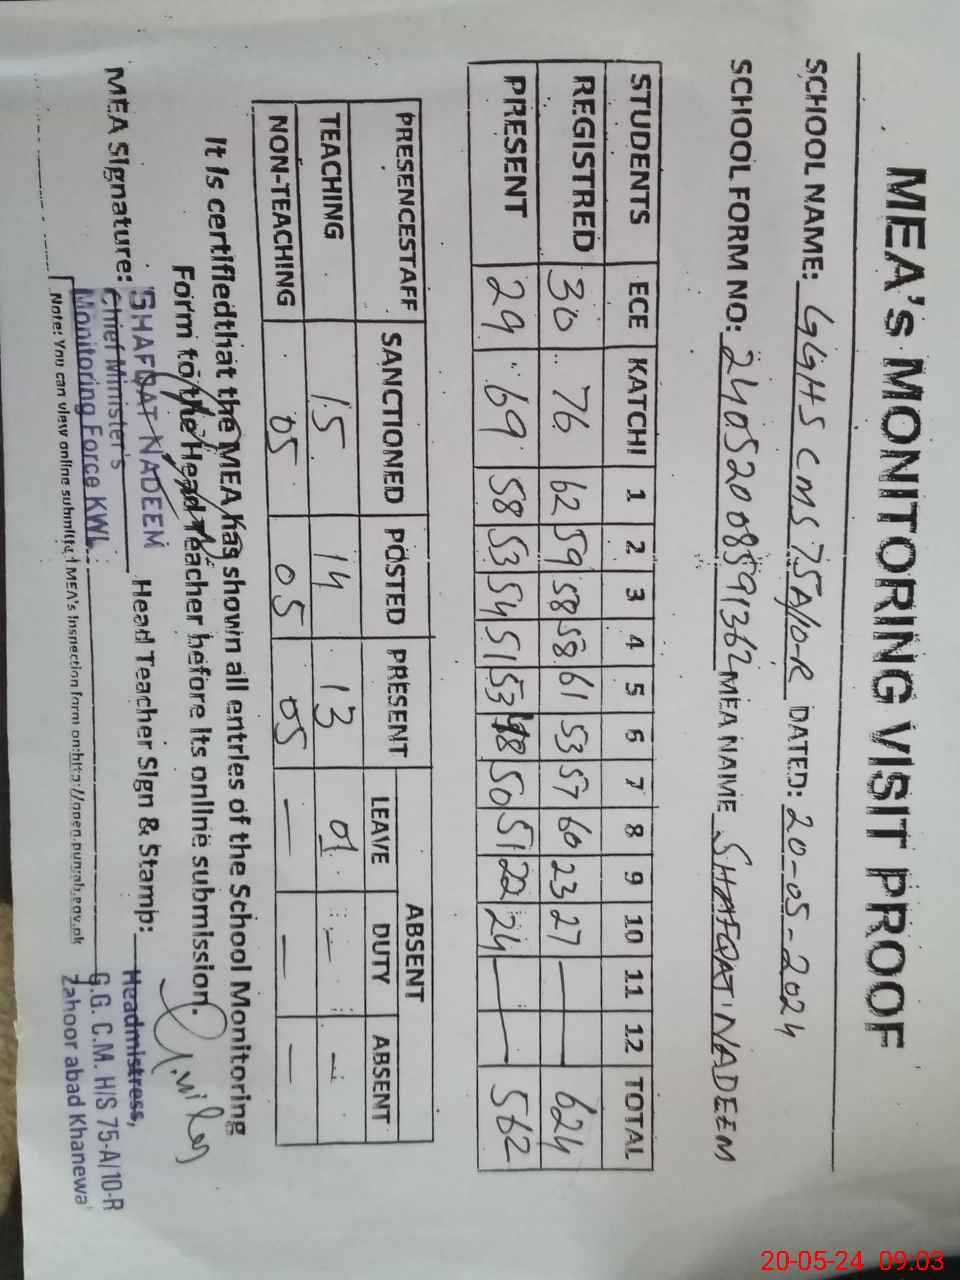 MEA's MONITORING VISIT PROOF
SCHOOL NAME: GGHS CMS 75A/10-R DATED: 20-05-2024
SCHOOL FORM NO: 24052008591362 MEA NAME SHAFQAT NADEEM
STUDENTS ECE KATCHI 1 2 3 4 5 6 7 8 9 10 11 12 TOTAL
REGISTRED 30 76 62 59 58 58 61 53 57 60 23 27 — 624
PRESENT 29 69 58 53 54 51 53 48 50 51 22 24 — 562
PRESENCESTAFF SANCTIONED POSTED PRESENT ABSENT
LEAVE DUTY ABSENT
TEACHING 15 14 13 01 — —
NON-TEACHING 05 05 05 — — —
It is certifiedthat the MEA has shown all entries of the School Monitoring
Form to the Head Teacher before its online submission.
MEA Signature: Head Teacher Sign & Stamp:
SHAFQAT NADEEM
Chief Minister's
Monitoring Force KWL
Headmistress,
G.G. C.M. H/S 75-A/10-R
Zahoor abad Khanewa
Note: You can view online submitted MEA's Inspection form on:http://open.punjab.gov.pk
20-05-24 09:03